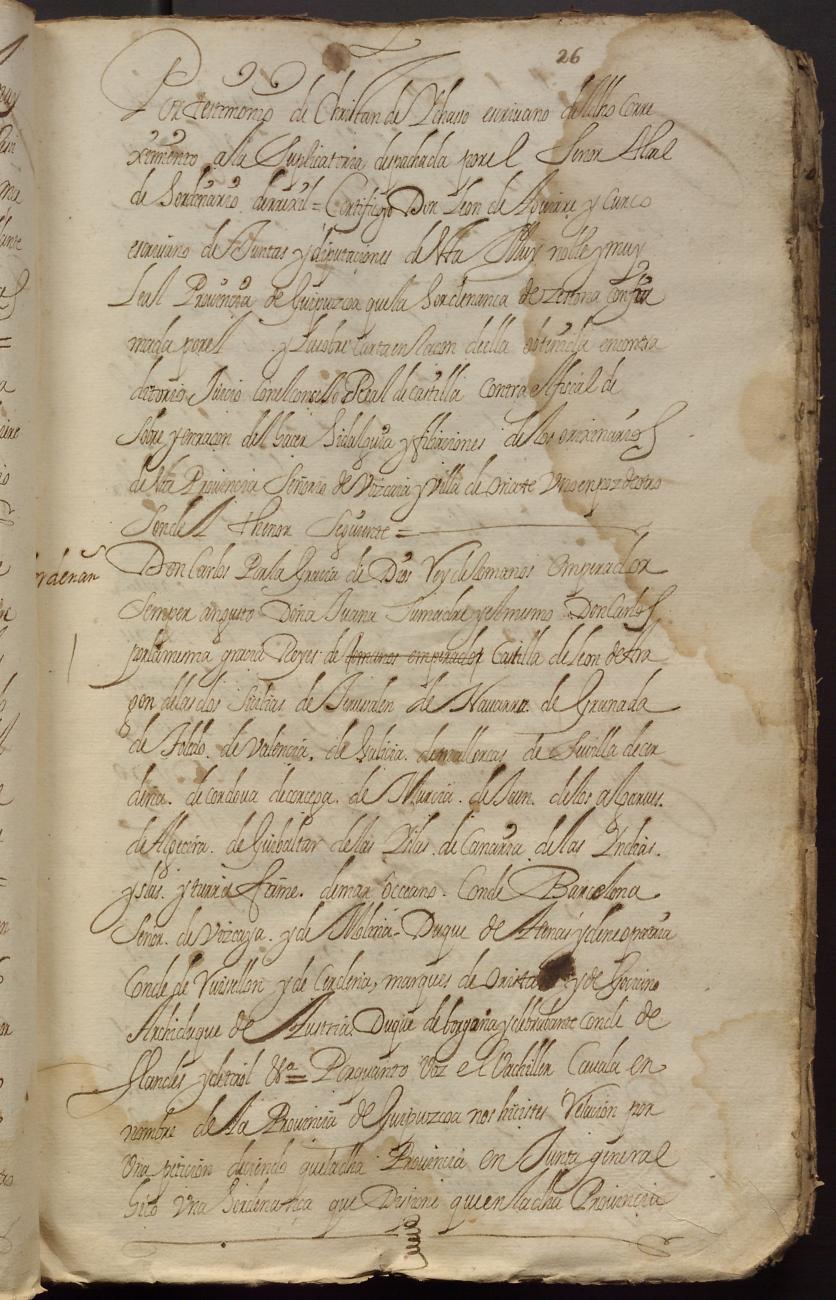 26
Por testimonio de Christan de Vchaso escriuano del dho Corre
ximiento a la Suplicatoria despachada por el Señor Alcal
de Sordinario derrexil = Certifigo Don Leon de Aguirre y Curco
escriuano de Juntas y diputaciones de Sta Muy noble y muy
Leal Prouincia de Guipuzcoa que la Sordenanca de zestona Confir
mada por el y la sobre Carta en Racon della obtenida encontra
ditorio Juicio Con el Conssejo Real de castilla Contra el fiscal de
Sobre y enrracon del hacer hidalguia y filiaciones de los orixinarios
de Sta Prouincia Señorio de Vizcaia y Villa de oñate Vno en poz de otro
Son del thenor Seguiente =
hordenan
Don Carlos Por la Gracia de Dios Rey de Romanos Emperador
Semper augusto Doña Juana Su madre y el mismo Don Carlos
por la misma gracia Reyes de Romanos emperador Castilla de Leon de Ara
gon de las dos Sicilias de Jerusalen de Nauarra de Granada
de Toledo de Valencia. de Galicia. de mallorcas de Seuilla decer
dena. de Cordoua de corcega. de Murcia. de Jaen. de los algarues.
de Algecira. de Guibaltar de las Yslas. de Canaria de las Yndias.
yslas. y tierra firme. de mar occeano. Conde Barcelona
Señor. de Vizcaya. y de Molina. Duque de Atenas y de neopatria
Conde de Ruisellon y de Cerdena, marques de Orista y de Gociano
Archiduque de Austria. Duque de borgoña y debrabante Conde de
flandes y de tirol &a = Por quanto Voz el Vachiller Cauala en
nombre de la Prouincia de Guipuzcoa nos hicistes Relacion por
Vna peticion diciendo que la dha Prouincia en Junta general
hico vna hordenanca que Dispone que en la dha Prouincia